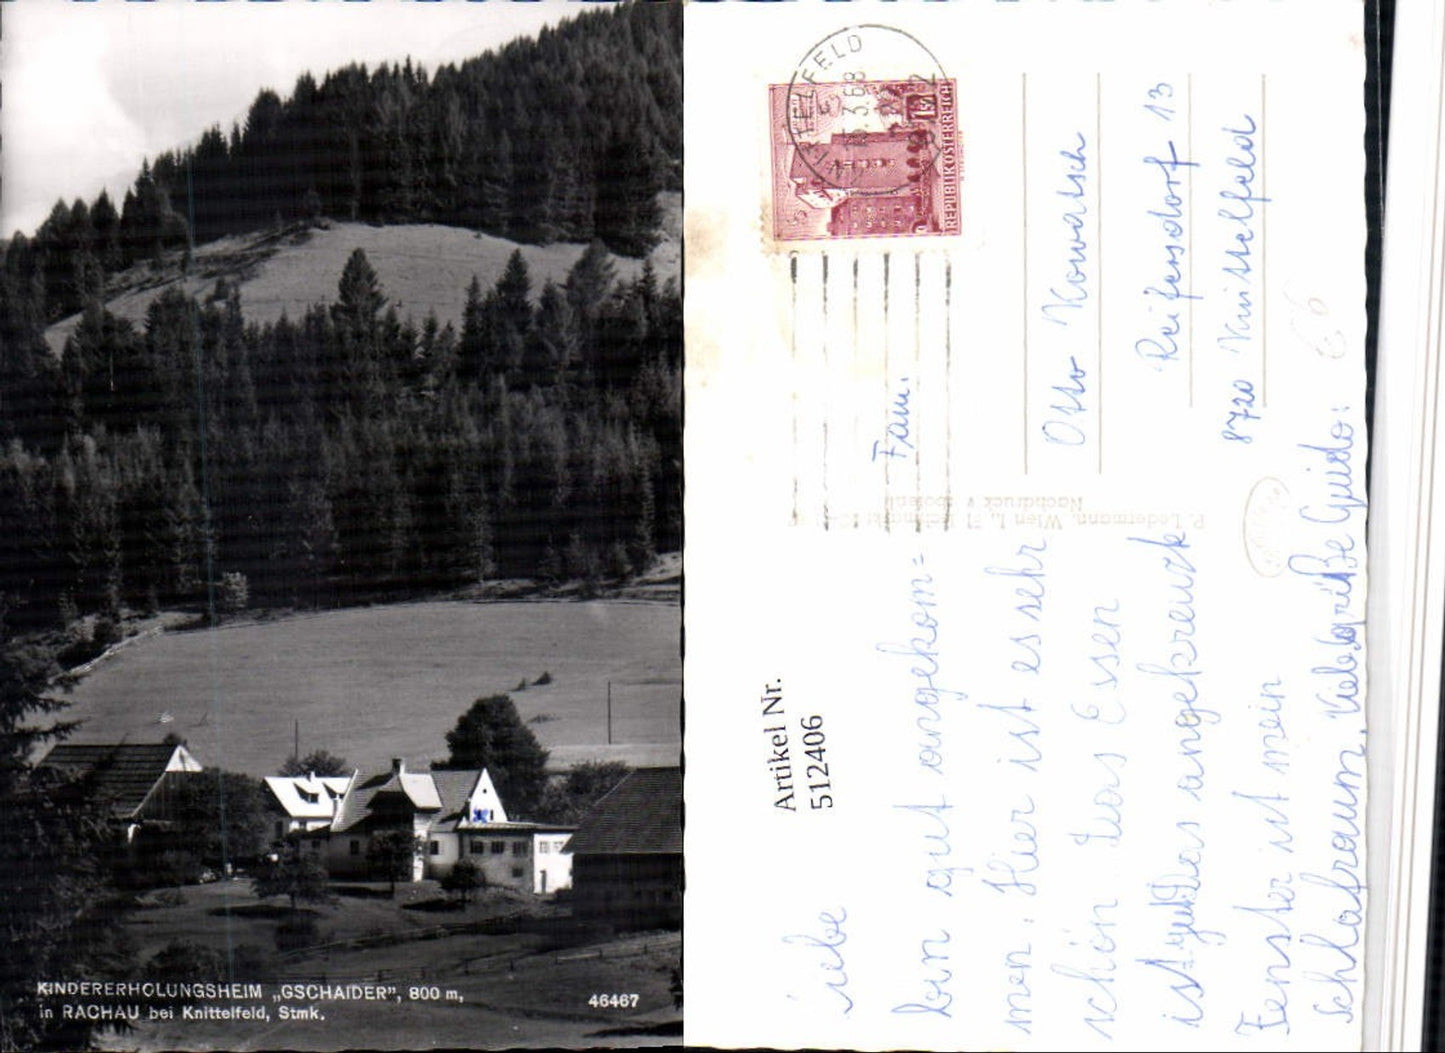 KINDERERHOLUNGSHEIM „GSCHAIDER”, 800 m,
in RACHAU bei Knittelfeld, Stmk.
46467
KNITTELFELD
REPUBLIK ÖSTERREICH
Fam.
Otto Kowatsch
Reifersdorf 13
8720 Knittelfeld
P. Ledermann, Wien I,
Nachdruck verboten
Artikel Nr.
512406
Liebe
bin gut angekom=
men. Hier ist es sehr
schön. Das Essen
ist gut. Das angekreuzte
Fenster ist mein
Schlafraum. Viele Grüße Guido!